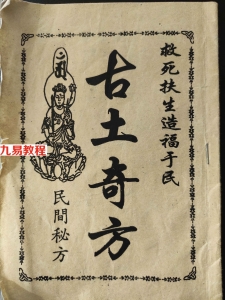 救死扶生造福于民
古土奇方
民間秘方
九易教程
www.9yjc.com